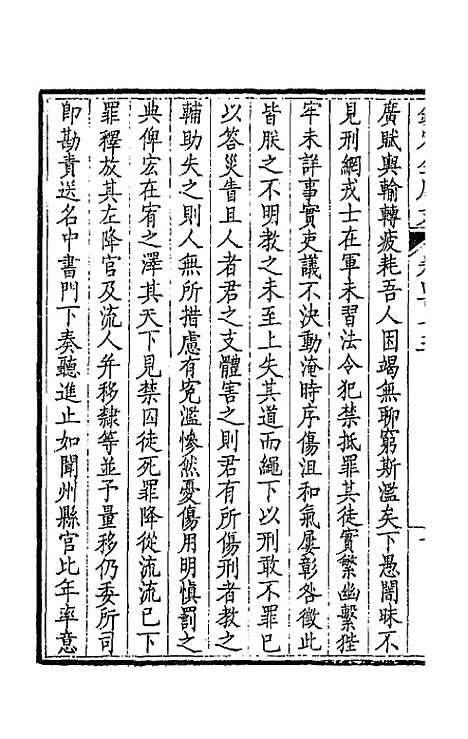 廣賦輿輸轉疲耗吾人困竭無聊窮斯濫矣下愚闇昧不
見刑網戎士在軍未習法令犯禁抵罪其徒實繁幽繫狴
牢未詳事實吏議不決動淹時序傷沮和氣屢彰咎徵此
皆朕之不明教之未至上失其道而繩下以刑敢不罪已
以答災眚且人者君之支體害之則君有所傷刑者教之
輔助失之則人無所措慮有冤濫慘然憂傷用明慎罰之
典俾宏在宥之澤其天下見禁囚徒死罪降從流流已下
罪釋放其左降官及流人并移隸等並予量移仍委所司
即勘責送名中書門下奏聽進止如聞州縣官比年率意